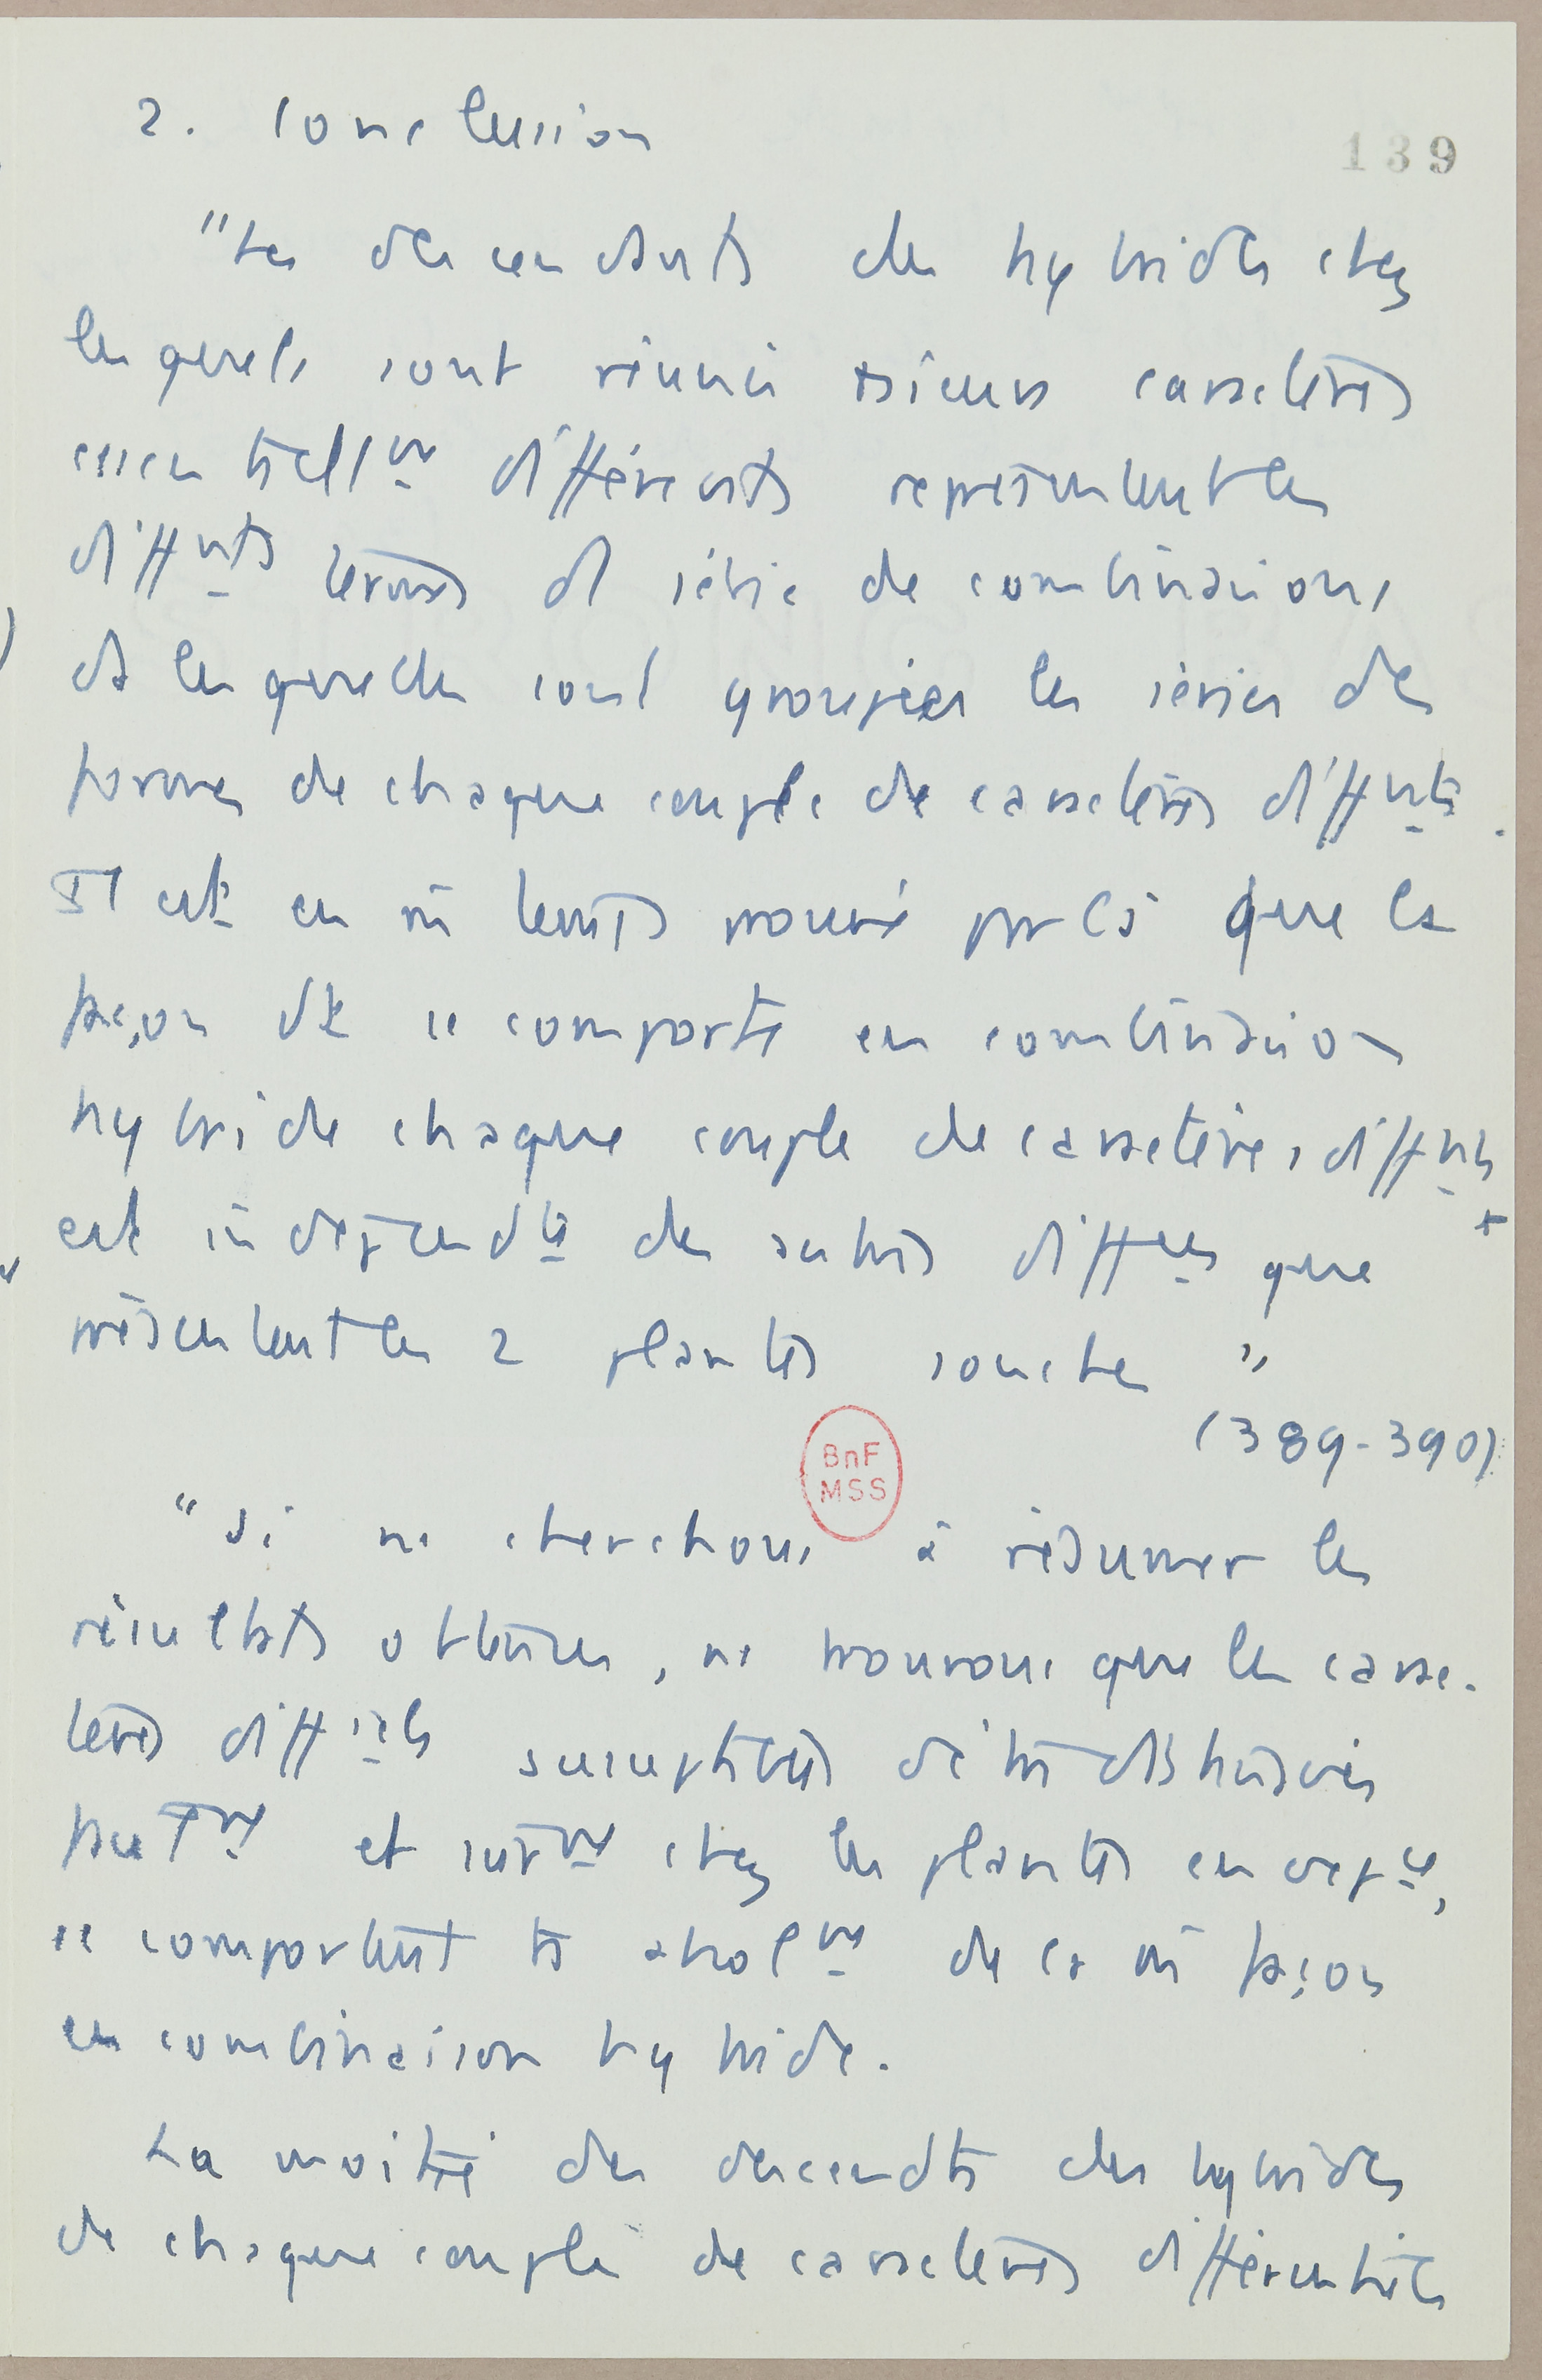 2. Conclusion
139
"Les descendants des hybrides chez
lesquels sont réunis +sieurs caractères
essentiellmt différents représentent les
difffnts termes d' série de combinaisons
ds lesquelles sont groupées les séries de
formes de chaque couple de caractères diffnts.
Il est en m̄ temps prouvé par là que la
façon dt se comporte en combinaison
hybride chaque couple de caractères diffnts
est indépendte des autres diffces que
présentent les 2 plantes souches "
(389-390)
BnF
MSS
"Si ns cherchons à résumer les
résultats obtenus, ns trouvons que les carac-
tères difftiels susceptibles d'être distingués
facmt et sûrmt chez les plantes en expce,
se comportent ts absolmt de la m̄ façon
en combinaison hybride.
La moitié des descendts des hybrides
de chaque couple de caractères différentiels